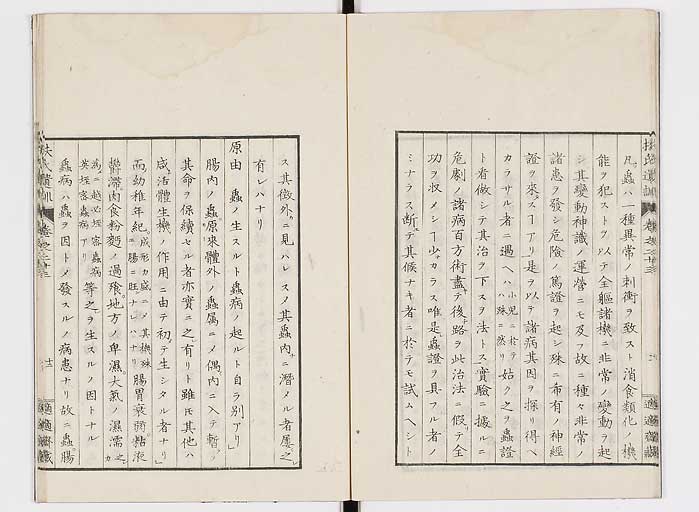 凡ソ蟲ハ一種異常ノ刺衝ヲ致スト消食類化ノ機
能ヲ犯ストヲ以テ全軀諸機ニ非常ノ變動ヲ起
シ其變動神識ノ運營ニモ及フ故ニ種々非常ノ
諸患ヲ發シ危險ノ篤證ヲ起シ殊ニ希有ノ神經
證ヲ來スヿアリ是ヲ以テ諸病其因ヲ探リ得ヘ
カラサル者ニ遇ヘハ小兒ニ於テハ殊ニ然リ姑ク之ヲ蟲證
ト者做シテ其治ヲ下スヲ法トス實驗ニ據ルニ
危劇ノ諸病百方術盡テ後路ヲ此治法ニ假テ全
功ヲ收メシヿ少カラス唯是蟲證ヲ具フル者ノ
ミナラス斷テ其候ナキ者ニ於テモ試ムヘシト
ス其徵外ニ見ハレスノ其蟲内ニ潛メル者屡之
有レハナリ
原由 蟲ノ生スルト蟲病ノ起ルト自ラ別アリ
腸内ノ蟲原來體外ノ蟲属ニメ偶内ニ入テ暫ク
其命ヲ保續セル者亦實ニ之有リト雖𪜈其他ハ
咸活體生機ノ作用ニ由テ初テ生シタル者ナリ
而幼稚年紀成形力盛ニメ其機殊ニ腸ニ旺ナレハナリ腸胃衰弱粘液
鬱滞肉食粉麪ノ過飱地方ノ卑濕大氣ノ濕濡之カ
病ニ
英垤密蟲病アリ等之ヲ生スルノ因トナル
蟲病ハ蟲ヲ因トメ發スルノ病患ナリ故ニ蟲腸
扶氏遺訓
適適齋藏